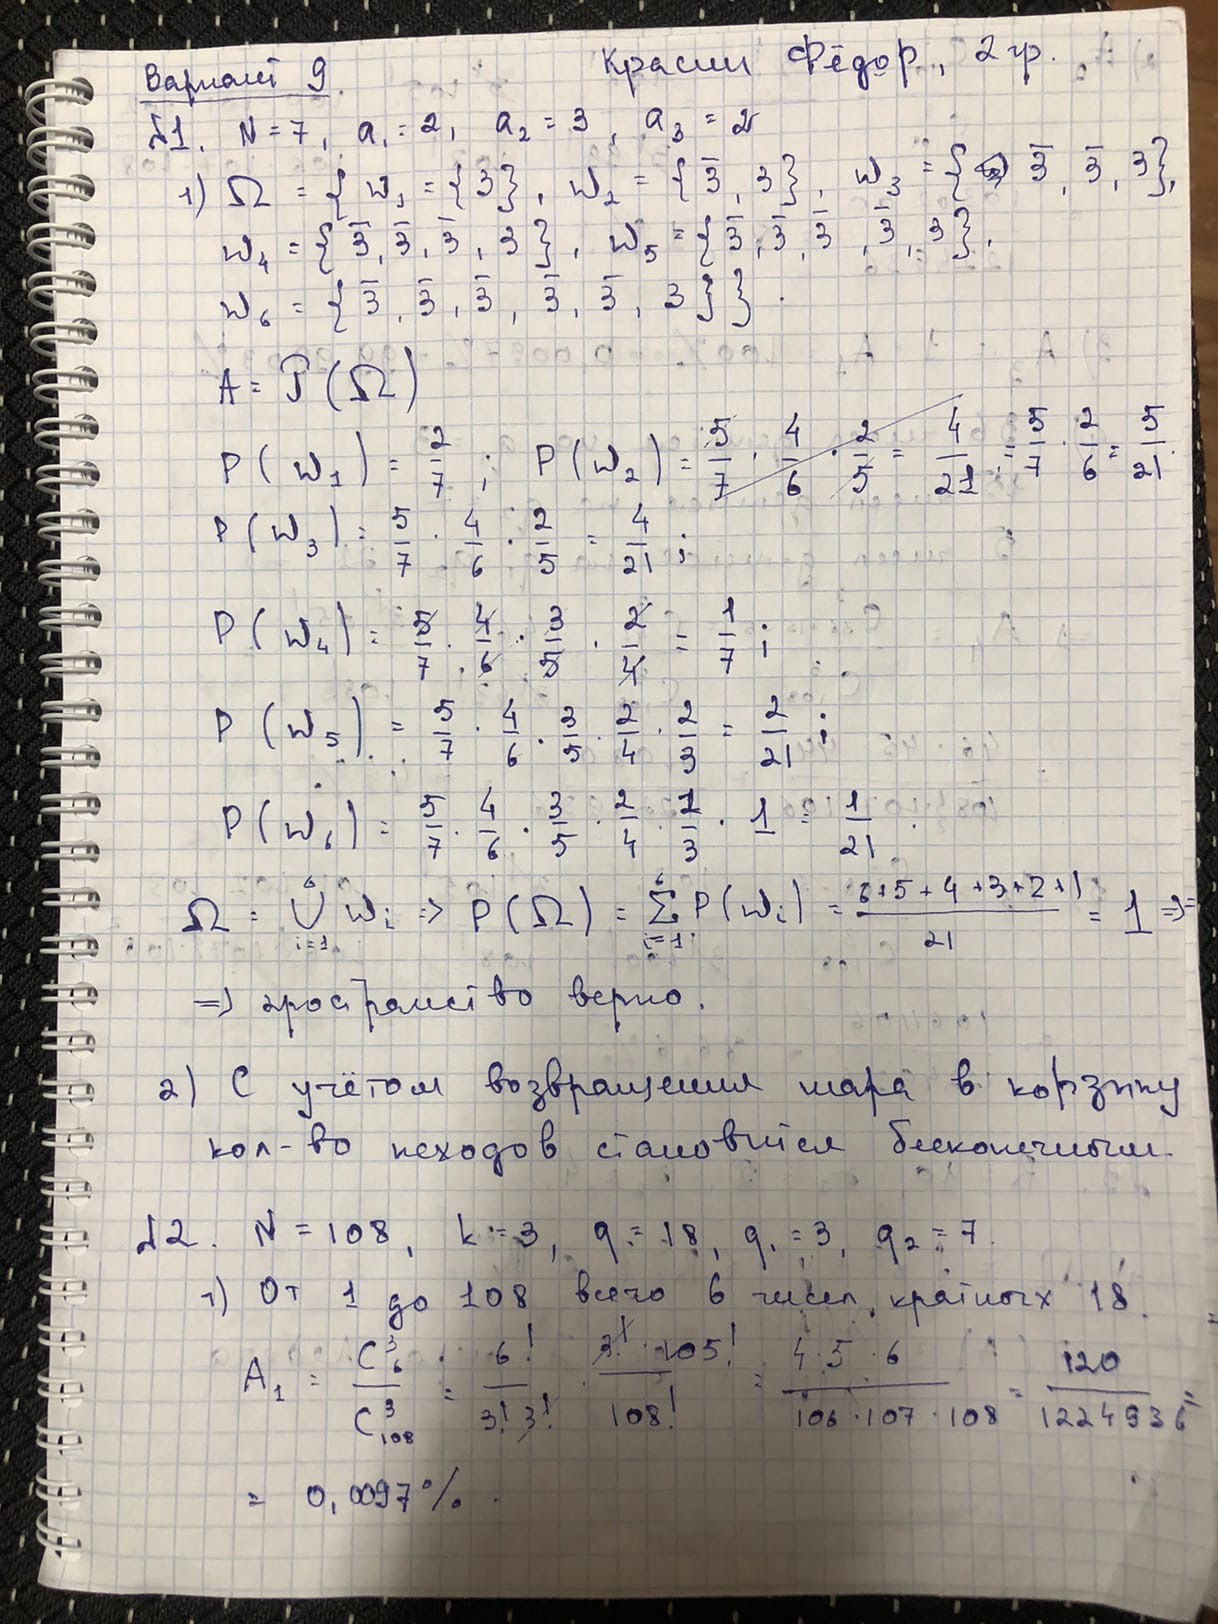 Вариант 9. Красин Фёдор, 2 гр.
№1. N = 7, a₁ = 2, a₂ = 3, a₃ = 2
1) Ω = { w₁ = {3}, w₂ = {3̄, 3}, w₃ = {3̄, 3̄, 3},
w₄ = {3̄, 3̄, 3̄, 3}, w₅ = {3̄, 3̄, 3̄, 3̄, 3},
w₆ = {3̄, 3̄, 3̄, 3̄, 3̄, 3}}.
A = P(Ω)
P(w₁) = 2/7; P(w₂) = 5/7 · 4/6 · 2/5 = 4/21; = 5/7 · 2/6 = 5/21.
P(w₃) = 5/7 · 4/6 · 2/5 = 4/21;
P(w₄) = 5/7 · 4/6 · 3/5 · 2/4 = 1/7;
P(w₅) = 5/7 · 4/6 · 3/5 · 2/4 · 2/3 = 2/21;
P(w₆) = 5/7 · 4/6 · 3/5 · 2/4 · 1/3 · 1 = 1/21.
Ω = ⋃ᵢ₌₁⁶ wᵢ => P(Ω) = Σᵢ₌₁⁶ P(wᵢ) = (6+5+4+3+2+1)/21 = 1 =>
=> пространство верно.
2) С учётом возвращения шара в корзину
кол-во исходов становится бесконечным.
№2. N = 108, k = 3, q = 18, q₁ = 3, q₂ = 7.
1) От 1 до 108 всего 6 чисел, кратных 18.
A₁ = C₆³/C₁₀₈³ = 6!/(3! 3!) · (3! · 105!)/108! = (4·5·6)/(106·107·108) = 120/1224936 =
= 0,0097%.